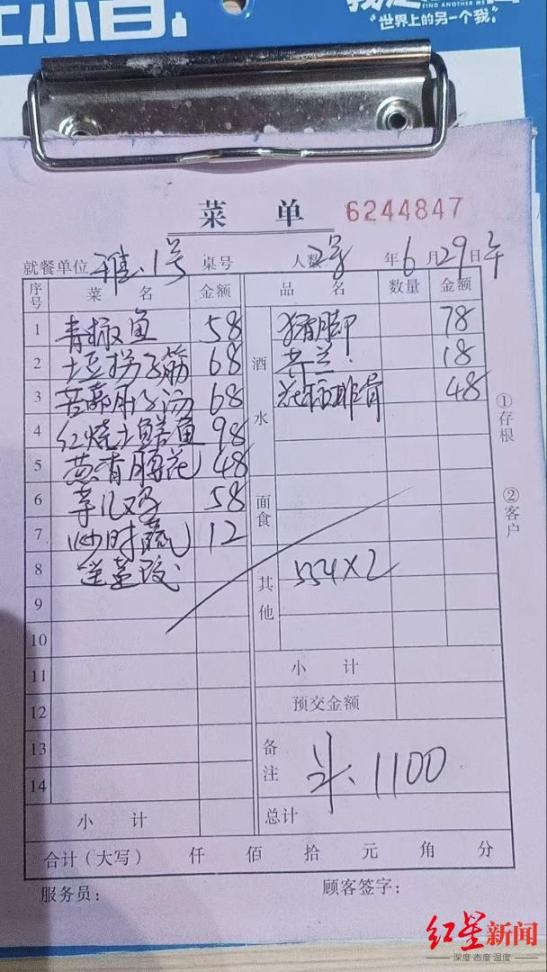 FIND ANOTHER ME
“世界上的另一个我”
菜 单 6244847
就餐单位 雅.1号 桌号 人数 2号 年 6 月 29 日 午
序号 菜 名 金额 品 名 数量 金额
1 青椒鱼 58 酒水 猪脚 78
2 土豆拐子筋 68 芥兰. 18
3 68 排骨 48
4 红烧土鳝鱼 98
5 葱香腰花 48
6 58 面食
7 炒时蔬 12
8 其他 554×2
9
10
11 小 计
12 预交金额
13 备注 斗. 1100
14
小 计 总计
合计(大写) 仟 佰 拾 元 角 分
服务员: 顾客签字:
①存根
②客户
红星新闻
深度 态度 温度